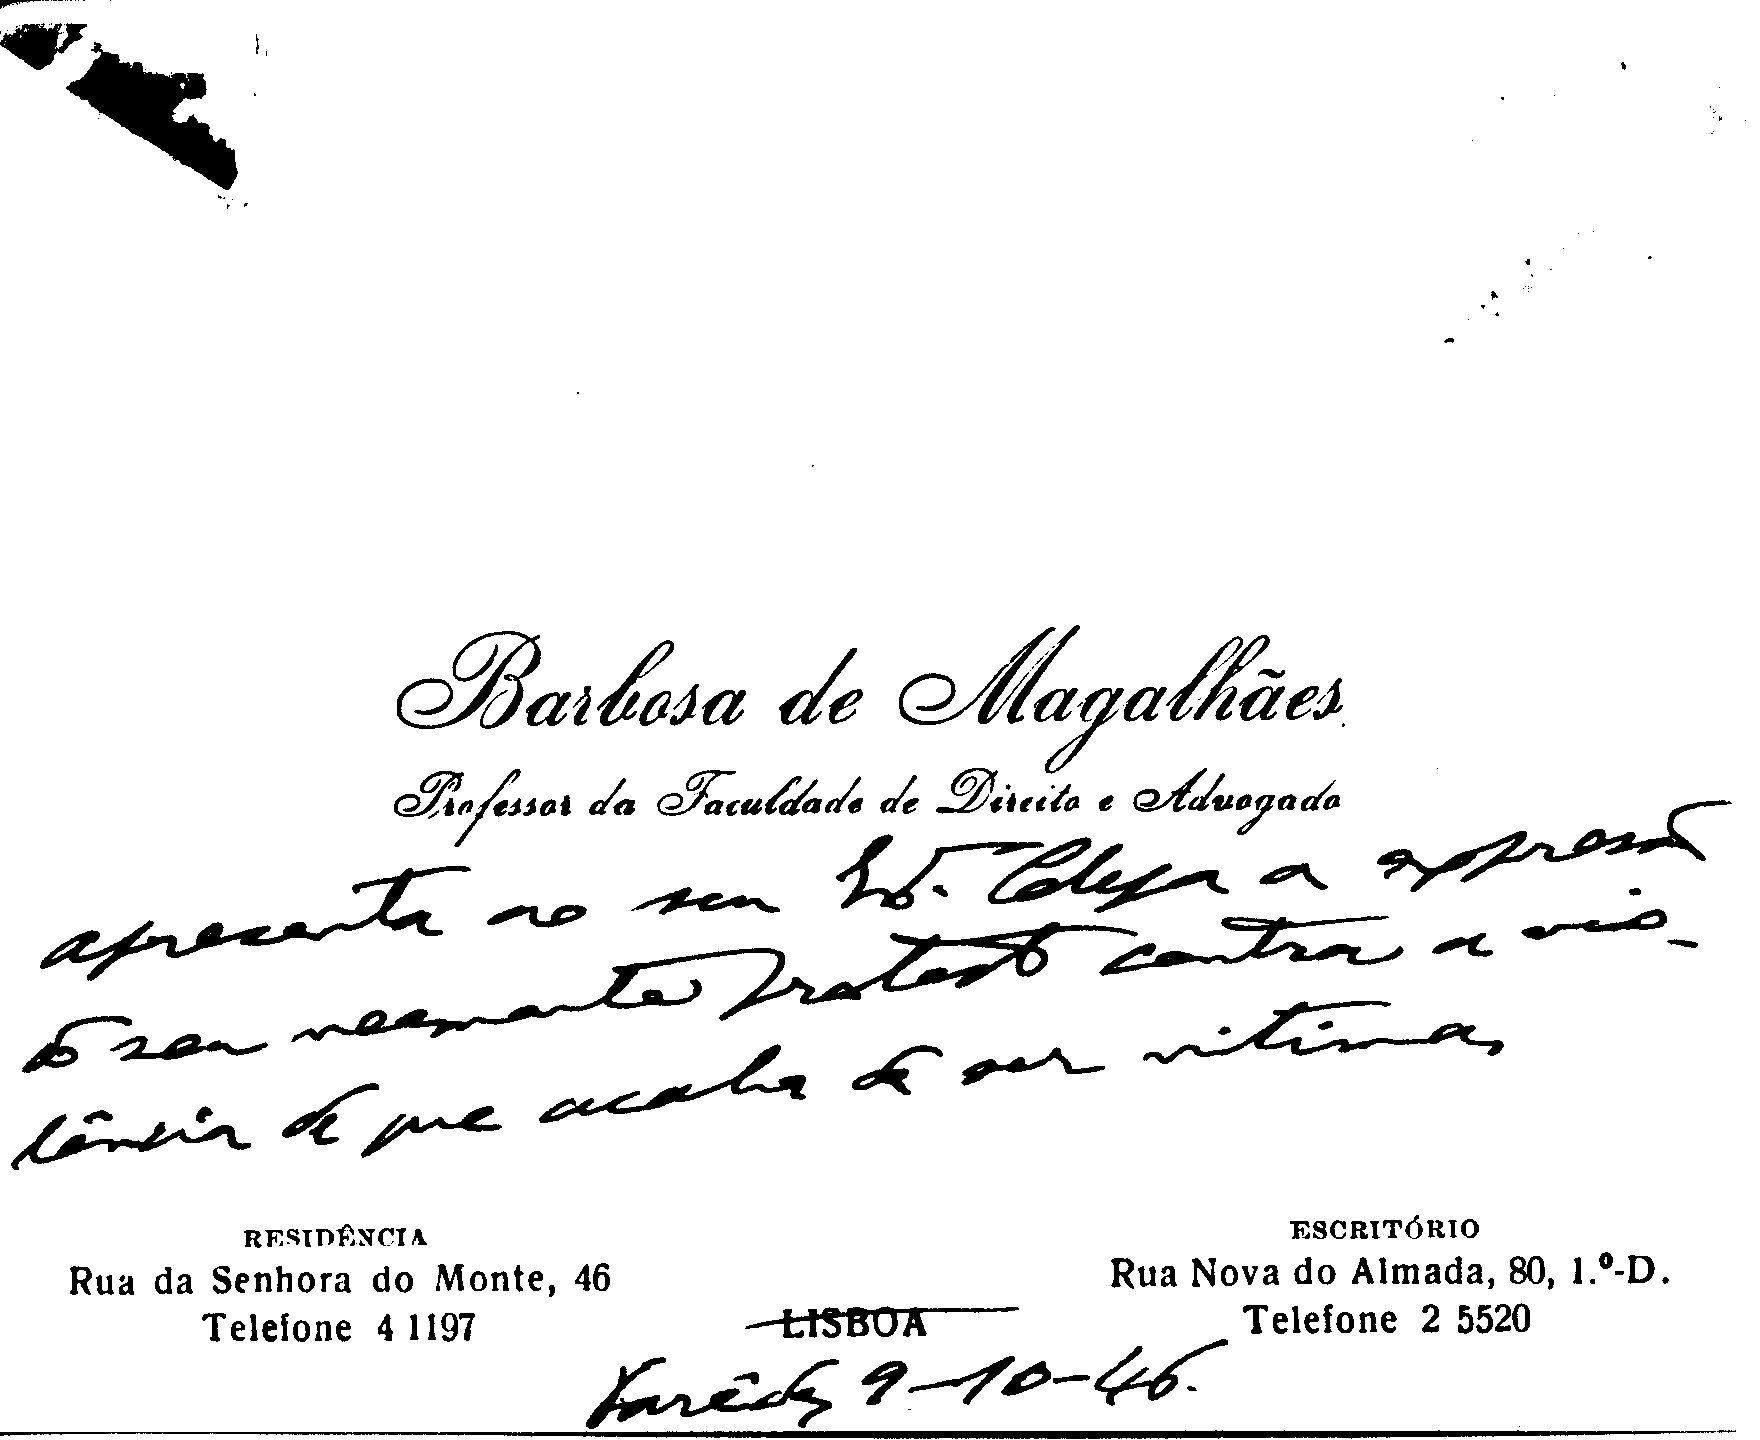 Barbosa de Magalhães
Professor da Faculdade de Direito e Advogado
apresenta ao seu Colega a expressão
do seu veemente protesto contra a vio-
lência de que acaba de ser vitima,
RESIDÊNCIA
Rua da Senhora do Monte, 46
Telefone 4 1197
ESCRITÓRIO
Rua Nova do Almada, 80, 1.º-D.
Telefone 2 5520
LISBOA
Parêde, 9-10-46.